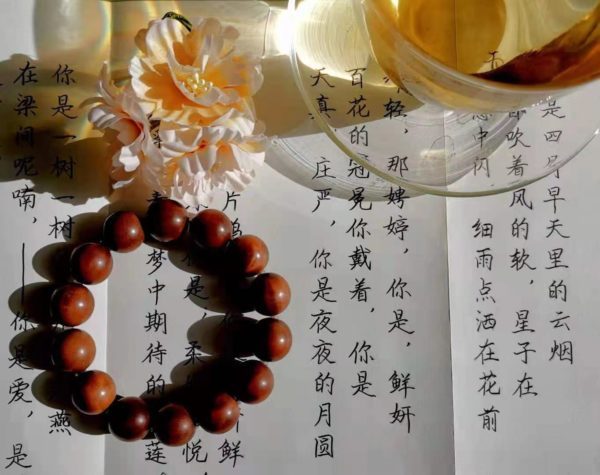 是四月早天里的云烟
吹着风的软，星子在
中闪 细雨点洒在花前
轻，那娉婷，你是，鲜妍
百花的冠冕你戴着，你是
天真，庄严，你是夜夜的月圆
片 鲜
是，柔 悦
梦中期待的 莲
你是一树一树 燕
在梁间呢喃，——你是爱，是